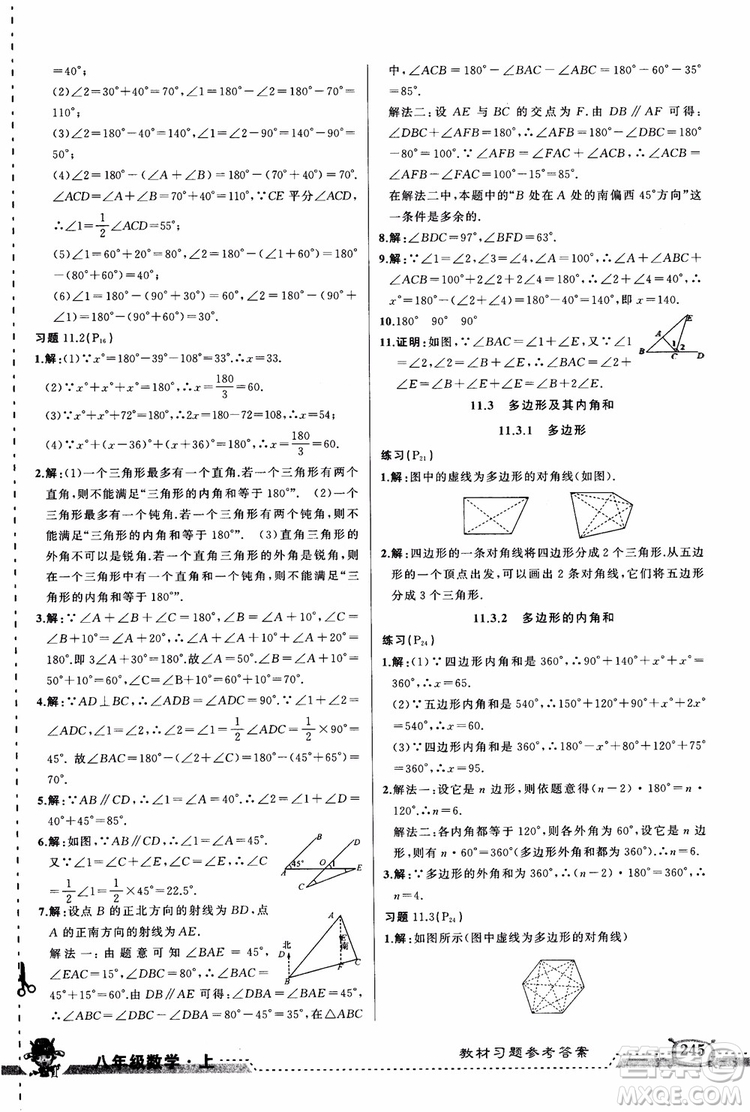 =40°;
(2)∠2=30°+40°=70°,∠1=180°-∠2=180°-70°=
110°;
(3)∠2=180°-40°=140°,∴∠1=180°-∠2=180°-
140°=40°;
(4)∠2=180°-(∠A+∠B)=180°-110°=70°,
∠ACD=∠A+∠B=40°+70°=110°,∵CE平分∠ACD,
∴∠1=1/2∠ACD=55°;
(5)∠1=60°+20°=80°,∠2=180°-(∠1+60°)=
180°-(80°+60°)=40°;
(6)∠1=60°-30°=30°,∠2=180°-(∠1+90°)=180°
-(30°+90°)=60°.
习题 11.2(P₁₆)
1.解:(1)∵x°=180°-39°-108°=33°,∴x=33.
(2)∵x°+x°+x°=180°,∴x=180/3=60.
(3)∵x°+x°+72°=180°,∴2x=180-72=108,∴x=54.
(4)∵x°+(x-36)°+(x+36)°=180°,∴x=180/3=60.
2.解:(1)一个三角形最多有一个直角.若一个三角形有两个
直角,则不能满足“三角形的内角和等于180°”. (2)一个
三角形最多有一个钝角.若一个三角形有两个钝角,则不
能满足“三角形的内角和等于180°”. (3)直角三角形的
外角不可以是锐角.若一个直角三角形的外角是锐角,则
在一个三角形中有一个直角和一个钝角,不能满足“三角
形的内角和等于180°”.
3.解:∵∠A+∠B+∠C=180°,∠B=∠A+10°,∠C=
∠B+10°=∠A+20°,∴∠A+∠A+10°+∠A+20°=
180.即3∠A=150°,故∠A=50°,∠B=∠A+10°=
50°+10°=60°,∠C=∠B+10°=60°+10°=70°.
4.解:∵AD⊥BC,∴∠ADB=∠ADC=90°.∵∠1+∠2=
∠ADC,∠1=∠2,∴∠1=∠2=1/2∠ADC=1/2×90°=
45°.故∠BAC=180°-(∠2+∠C)=180°-(45°+65°)=
70°.
5.解:∵AB∥CD,∴∠A+∠D=180°,∴∠1=180°-∠D
-∠C=85°.
6.解:如图,∵AB∥CD,∴∠1=∠A=45°.
又∵∠C=∠E,∠1=∠C+∠E,∴∠C
=1/2∠1=1/2×45°=22.5°.
A
B
C
D
E
O
45°
1
7.解:设点B的正北方向的射线为BD,点
A的正南方向的射线为AE.
解法一:由题意可知∠BAE=45°,
∠EAC=15°,∠DBC=80°.∵DB∥
AE,∴∠DBA=∠BAE=45°.∴∠ABC=∠DBC-
∠DBA=80°-45°=35°.∴∠BAC=60°.∴在△ABC
北
D
B
A
E
南
F
C
中,∠ACB=180°-∠BAC-∠ABC=180°-60°-35°
=85°.
解法二:设AE与BC的交点为F.由DB∥AF可得:
∠DBC+∠AFB=180°,∴∠AFB=180°-80°=100°,
∴∠ACB=∠AFB-∠FAC=100°-15°=85°.
在解法二中,本题中的“B处在A处的南偏西45°方向”这
一条件是多余的.
8.解:∠BDC=97°,∠BFD=63°.
9.解:∵∠1=∠2,∠3=∠4,∠A=100°,∴∠A+∠ABC+
∠ACB=100°+2∠2+2∠4=180°,∴∠2+∠4=40°.∴
x°=180°-(∠2+∠4)=180°-40°=140°,即x=140.
10.180° 90° 90°
11.证明:如图,∵∠BAC=∠1+∠E,又∵∠1
=∠2,∠2=∠B+∠E,∴∠BAC=∠B+
∠E+∠E=∠B+2∠E.
A
B
C
D
E
1
2
11.3 多边形及其内角和
11.3.1 多边形
练习(P₂₁)
1.解:图中的虚线为多边形的对角线(如图).
2.解:四边形的一条对角线将四边形分成2个三角形.从五边
形的一个顶点出发,可以画出2条对角线,它们将五边形
分成3个三角形.
11.3.2 多边形的内角和
练习(P₂₄)
1.解:(1)∵四边形内角和是360°,∴x°+90°+140°+x°=
360°,∴x=65.
(2)∵五边形内角和是540°,∴150°+120°+90°+x°+2x°
=540°,∴x=60.
(3)∵四边形内角和是360°,∴75°+120°+80°+180°-x°
=360°,∴x=95.
2.解:解法一:设它是n边形,则依题意得(n-2)×180=
120·n.∴n=6.
解法二:各内角都等于120°,则各外角为60°,设它是n边
形,由多边形的外角和等于360°可得n·60=360.∴n=6.
3.解:∵多边形的外角和为360°,∴(n-2)×180=360,∴
n=4.
习题 11.3(P₂₄)
1.解:如图所示(图中虚线为多边形的对角线)
八年级数学·上
教材习题参考答案
245
MXQE.COM